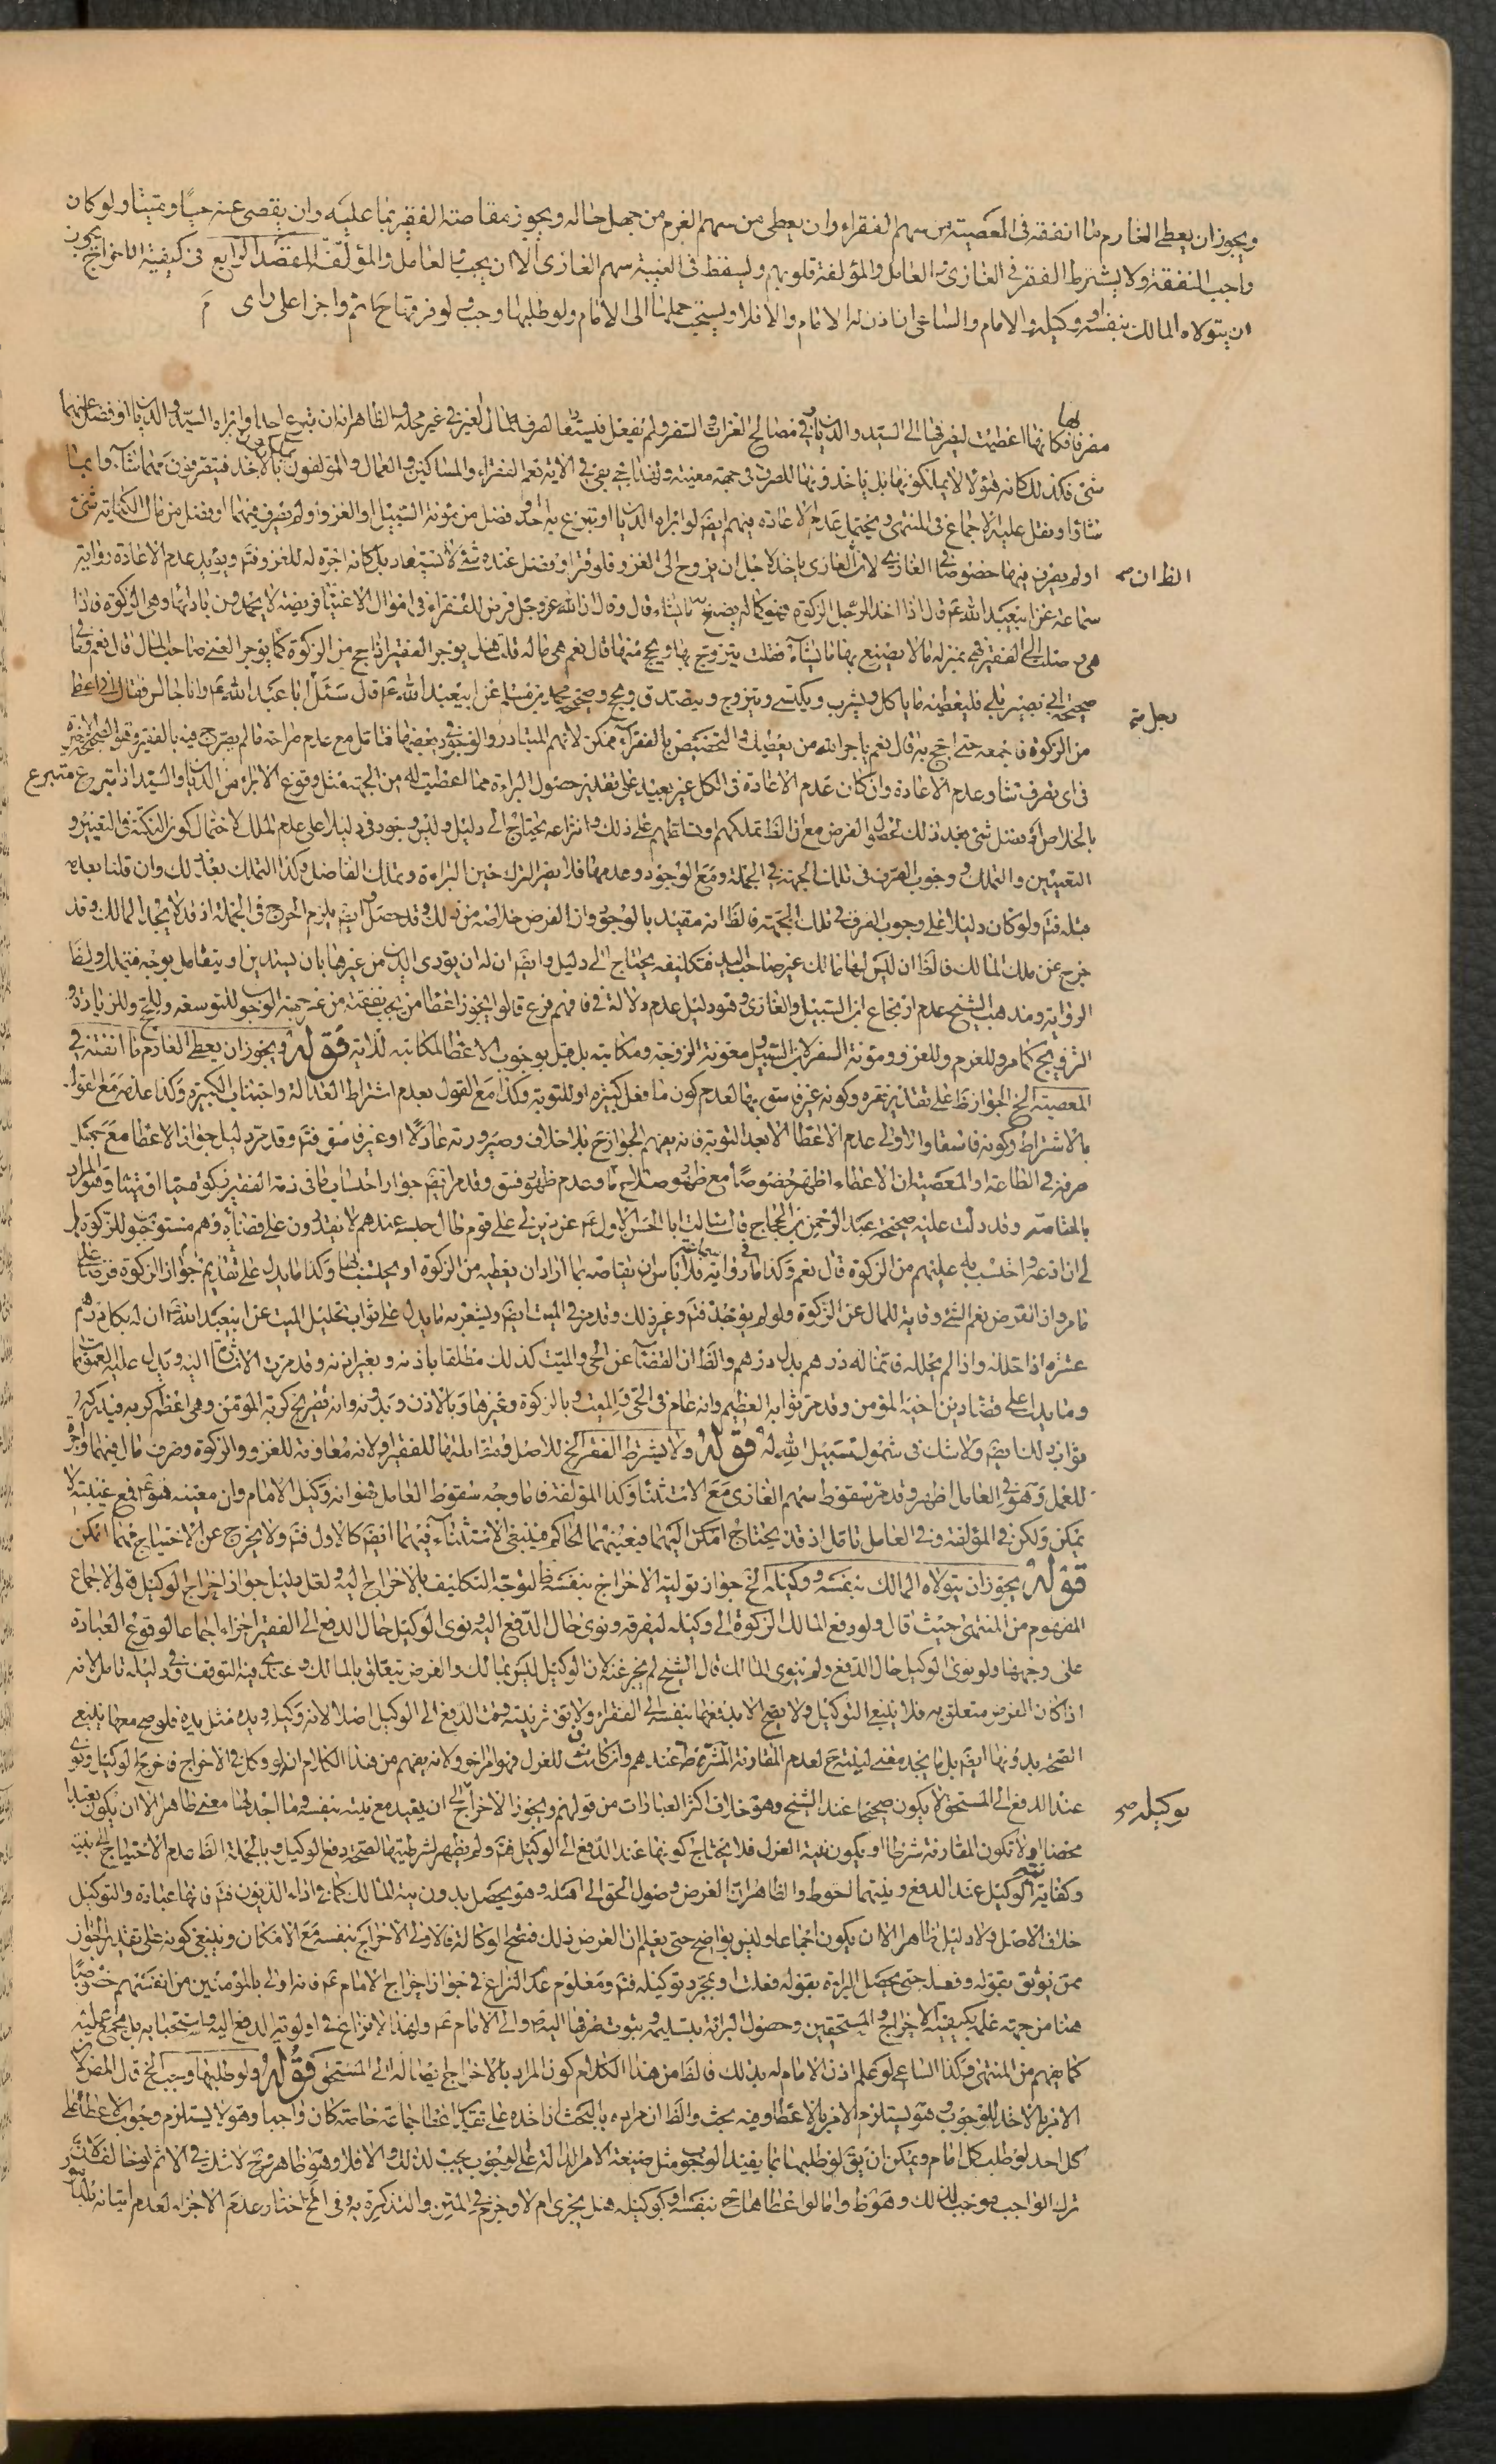 ويجوز ان يعطى الغارم ما انفقه فى المعصية من سهم الفقراء وان يعطى من سهم الغرم من جهل حاله ويجوز مقاصة الفقير بما عليه وان يقضى عنه حيا وميتا ولو كان
واجب النفقة ولا يشترط الفقر فى الغازى و العامل والمؤلفة قلوبهم ويسقط فى الغيبة سهم الغازى الا ان يجب و العامل والمؤلفة المقصد الرابع فى كيفية الاخراج يجوز
ان يتولاه المالك بنفسه او وكيله والامام والساعى ان اذن له الامام والا فلا ويستحب حملها الى الامام ولو طلبها وجب ولو فرقها ح اثم واجزا على راى م
بها
مصرفا فكانها اعطيت ليصرفها الى السيد والديان وفى مصالح الغزاة والسفر ولم يفعل فيستعاد لصرف المال فى الغير فى غير محله والظاهر انه ان تبرع احد او ابراه السيد والديان او فضل عنهما
شئ فكذلك كانه هؤلاء لا يملكونها بل ياخذونها للصرف فى جهة معينة ولهذا فى الاية نعم الفقراء والمساكين والعمال والمؤلفون يملكون بالاخذ فيتصرفون مهما شاء وايما
شاؤا ونقل عليه الاجماع فى المنتهى ويحتمل عدم الاعادة منهم ايضا لو ابراه الديان او تبرع به احد او فضل من مؤنة السبيل او الغزو او لم يصرف فيهما او فضل من مال الكتابة شئ
الظ ان صح
او لم يصرف فيها خصوصا فى الغازى لان الغازى ياخذ لاجل ان يروح الى الغزو فلو قتر او فضل عنده شئ لا يستعاد بل كانه اجرة له للغزو فتم ويؤيد عدم الاعادة رواية
سماعة عن ابيعبد الله ع قال اذا اخذ الرجل الزكوة فهو كماله يصنع بها ما يشاء قال وقال ان الله عز وجل فرض للفقراء فى اموال الاغنيا فريضة لا يحمدون بادائها وهى الزكوة فاذا
هى وصلت الى الفقير فهى بمنزلة ماله يصنع بها ما يشاء فقلت يتزوج بها ويحج منها قال نعم هى ماله قلت فهل يوجر الفقير اذا حج من الزكوة كما يوجر الغنى صاحب المال قال نعم وفى
صحيحة ابى بصير بلى فليعطيه ما ياكل ويشرب ويكتسى ويتزوج ويتصدق ويحج وصحيحة محمد بن مسلم عن ابيعبد الله ع قال سئل ابا عبد الله ع وانا جالس فقال انى اعطى
رجل صح
من الزكوة فاجمعه حتى احج به قال نعم ياجر الله من يعطيك والتخصيص بالفقراء ممكن لانهم المتبادر والموجود فى بعضها فتامل مع عدم صراحة مالم يصرح فيه بالفقير
فى اى تصرف شاء وعدم الاعادة وان كان عدم الاعادة فى الكل غير بعيد على تقدير حصول البراءة مما اعطيت له من الجهة مثل وقوع الابراء من الديان والسيد اذا تبرع متبرع
بالخلاص او فضل شئ بعد ذلك لحصول الغرض مع ان الظ تملكهم او تسلطهم على ذلك وانتزاعه يحتاج الى دليل وليس وجود فى دليلا على عدم الملك لاحتمال كون النكتة فى التغيير
التعيين والتملك ووجوب الصرف فى تلك الجهة فى الجملة ومع الوجود وعدمها فلا يضر الترك حين البراءة وتملك الفاضل وكذا التملك بعد ذلك وان قلنا بعدم
مثله فتم ولو كان دليلا على وجوب الصرف فى تلك الجهة فالظ انه مقيد بالوجود وان الغرض خلاصه من ذلك وقد حصل وايضا يلزم الحرج فى الجملة اذ قد لا يجد المالك وقد
خرج عن ملك المالك فالظ ان ليس لها مالك غير صاحب اليد فتكليفه يحتاج الى دليل وايضا ان له ان يؤدى الدين من غيرها بان يستدين او يتعامل بوجه
الرواية ومذهب الشيخ عدم ارتجاع ابن السبيل والغازى وهو دليل عدم دلالة فى فافهم فرع قالوا يجوز اعطا من يجب نفقته من غير جهة الوجوب للتوسعة وللحج وللزيارة و
التزويج كما مر وللغرم وللغزو ومؤنة السفر لابن السبيل و معونة الزوجة ومكاتبه بل قيل بوجوب الاعطا لمكاتبه للاية قوله ويجوز ان يعطى الغارم ما انفقه فى
المعصية الخ الجواز ظ على تقدير فقره وكونه غير فاسق بها لعدم كون ما فعل كبيرة او للتوبة وكذا مع القول بعدم اشتراط العدالة واجتناب الكبيرة وكذا مع القول
بالاشتراط وكونه فاسقا والاولى عدم الاعطا الا بعد التوبة فانه يفهم الجواز ح بلا خلاف وصيرورته عادلا او غير فاسق فتم وقد مر دليل جواز الاعطا مع جهل
صرفه فى الطاعة او المعصية وان الاعطاء اظهر خصوصا مع ظهور صلاح ما وعدم ظهور فسق وقد مر ايضا جواز احتساب ما فى ذمة الفقير زكوة حيا او ميتا وهو المراد
بالمقاصة وقد دلت عليه صحيحة عبد الرحمن بن الحجاج قال سالت ابا الحسن الاول ع عن دين لى على قوم طال حبسه عندهم لا يقدرون على قضائه وهم مستوجبون للزكوة
لى ان ادعه واحتسب به عليهم من الزكوة قال نعم وكذا ما فى رواية سماعة فلا باس ان يقاصه بما اراد ان يعطيه من الزكوة او يحتسب وكذا ما يدل على تقديم جواز الزكوة قرضا على
ما مر وان القرض نعم الشئ وقاية للمال عن الزكوة ولو لم يوجد فتم وغير ذلك وقد مر فى الميت ايضا ويشعر به ما يدل على ثواب تحليل الميت عن ابيعبد الله ع ان له بكل درهم
عشرة اذا حلله واذا لم يحلله فانما له درهم بدل درهم والظ ان القضاء عن الحى والميت كذلك مطلقا باذنه وبغير اذنه وقد مرت الاشارة اليه ويدل عليه
وما يدل على قضاء دين اخيه المؤمن وقد مر ثوابه العظيم وانه عام فى الحى والميت وبالزكوة وغيرها وبالاذن وبدونه وانه تفريج كربة المؤمن وهى اعظم كربه
ثواب ذلك ايضا ولا شك فى شمول سبيل الله له قوله ولا يشترط الفقر الخ للاصل ومقابلتها للفقير ولانه معاونة للغزو والزكوة وصرف مال فيهما واجرة
للعمل وهو فى العامل اظهر وقد مر سقوط سهم الغازى مع الاستثناء وكذا المؤلفة فاما وجه سقوط العامل فهو انه وكيل الامام وان معينه هو ع فمع غيبته لا
يمكن ولكن فى المؤلفة وفى العامل تامل اذ قد يحتاج امكن اليهما فيعينهما الحاكم فينبغى الاستثناء فيهما ايضا كالاول فتم ولا يخرج عن الاحتياج مهما امكن
قوله يجوز ان يتولاه المالك بنفسه ووكيله الخ جواز تولية الاخراج بنفسه ظ لتوجه التكليف بالاخراج اليه ولعل دليل جواز اخراج الوكيل قوله الاجماع
المفهوم من المنتهى حيث قال ولو دفع المالك الزكوة الى وكيله ليفرقه ونوى حال الدفع اليه ونوى الوكيل حال الدفع الى الفقير اجزاء اجماعا لوقوع العبادة
على وجهها ولو نوى الوكيل حال الدفع ولم ينوى المالك قال الشيخ لم يجز عنه لان الوكيل ليس بمالك والفرض يتعلق بالمالك وعندى فيه التوقف وفى دليله تامل لانه
اذا كان الفرض متعلق به فلا ينبغى التوكيل ولا يصح الا بدفعها بنفسه الى الفقراء ولا يؤثر نيته وقت الدفع الى الوكيل اصلا لانه وكيله ويده مثل يده فلو صح معها ينبغى
الصحة بدونها ايضا بل ما نجد معنى لنيته ح لعدم المقارنة المشترطة عندهم وان كانت للعزل فهو امر اخر ولانه يفهم من هذا الكلام انه لو وكل فى الاخراج فاخرج الوكيل ونوى
بوكيله صح
عند الدفع الى المستحق لا يكون صحيحا عند الشيخ وهو خلاف اكثر العبارات من قولهم ويجوز الاخراج الى ان يقيد مع نيته بنفسه وما اجد لها معنى ظاهر الا ان يكون تعبدا
محضا او لا تكون المقارنة شرطا او يكون نية العزل فلا يحتاج كونها عند الدفع الى الوكيل فتم ولم يظهر لشرطيتها لصحة دفع الوكيل وبالجملة الظ عدم الاحتياج الى نيته
وكفاية نية الوكيل عند الدفع ونيتهما احوط والظاهر ان الغرض وصول الحق الى اهله وهو يحصل بدون نية المالك كما فى اداء الديون فتم فانها عبادة والتوكيل
خلاف الاصل ولا دليل ظاهرا الا ان يكون اجماعا وليس بواضح حتى يعلم ان الغرض ذلك فتصح الوكالة فالاولى الاخراج بنفسه مع الامكان وينبغى كونه على تقدير الجواز
ممن يوثق بقوله وفعله حتى يحصل البراءة بقوله فعلت او بمجرد توكيله فتم ومعلوم عدم النزاع فى جواز اخراج الامام ع فانه اولى بالمؤمنين من انفسهم خصوصا
هنا من جهة علمه بكيفية الاخراج والمستحقين وحصول البراءة بتسليمه وثبوت صرفها اليه ص والى الامام ع ولهذا لا نزاع فى اولوية الدفع اليه واستحبابه بل مجمع عليه
كما يفهم من المنتهى وكذا الساعى لو علم اذن الامام له بذلك فالظ من هذا الكلام كون المراد بالاخراج ايصاله الى المستحق قوله ولو طلبها وجب الخ قال المص لان
الامر بالاخذ للوجوب وهو يستلزم الامر بالاعطاء وفيه بحث والظ ان مراده بالبحث ان اخذه على تقدير اعطا جماعة خاصة كان واجبا وهو لا يستلزم وجوب الاعطا على
كل احد لو طلب كل امام ويمكن ان يق لو طلبها بما يفيد الوجوب مثل صيغة الامر الدالة على الوجوب يجب لذلك والا فلا وهو ظاهر و ح لا شك فى الاثم لو خالف لان
ترك الواجب موجب لذلك وهو ظ واما لو اعطاها ح بنفسه او بوكيله هل يجزى ام لا وجزم فى المتن والتذكرة به وفى لخ اختار عدم الاجزاء لعدم اتيانه بالمأمور